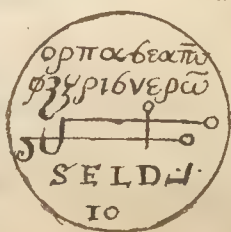 ορπασεαπω̃
φξξρισνερω̃
SELD
IO